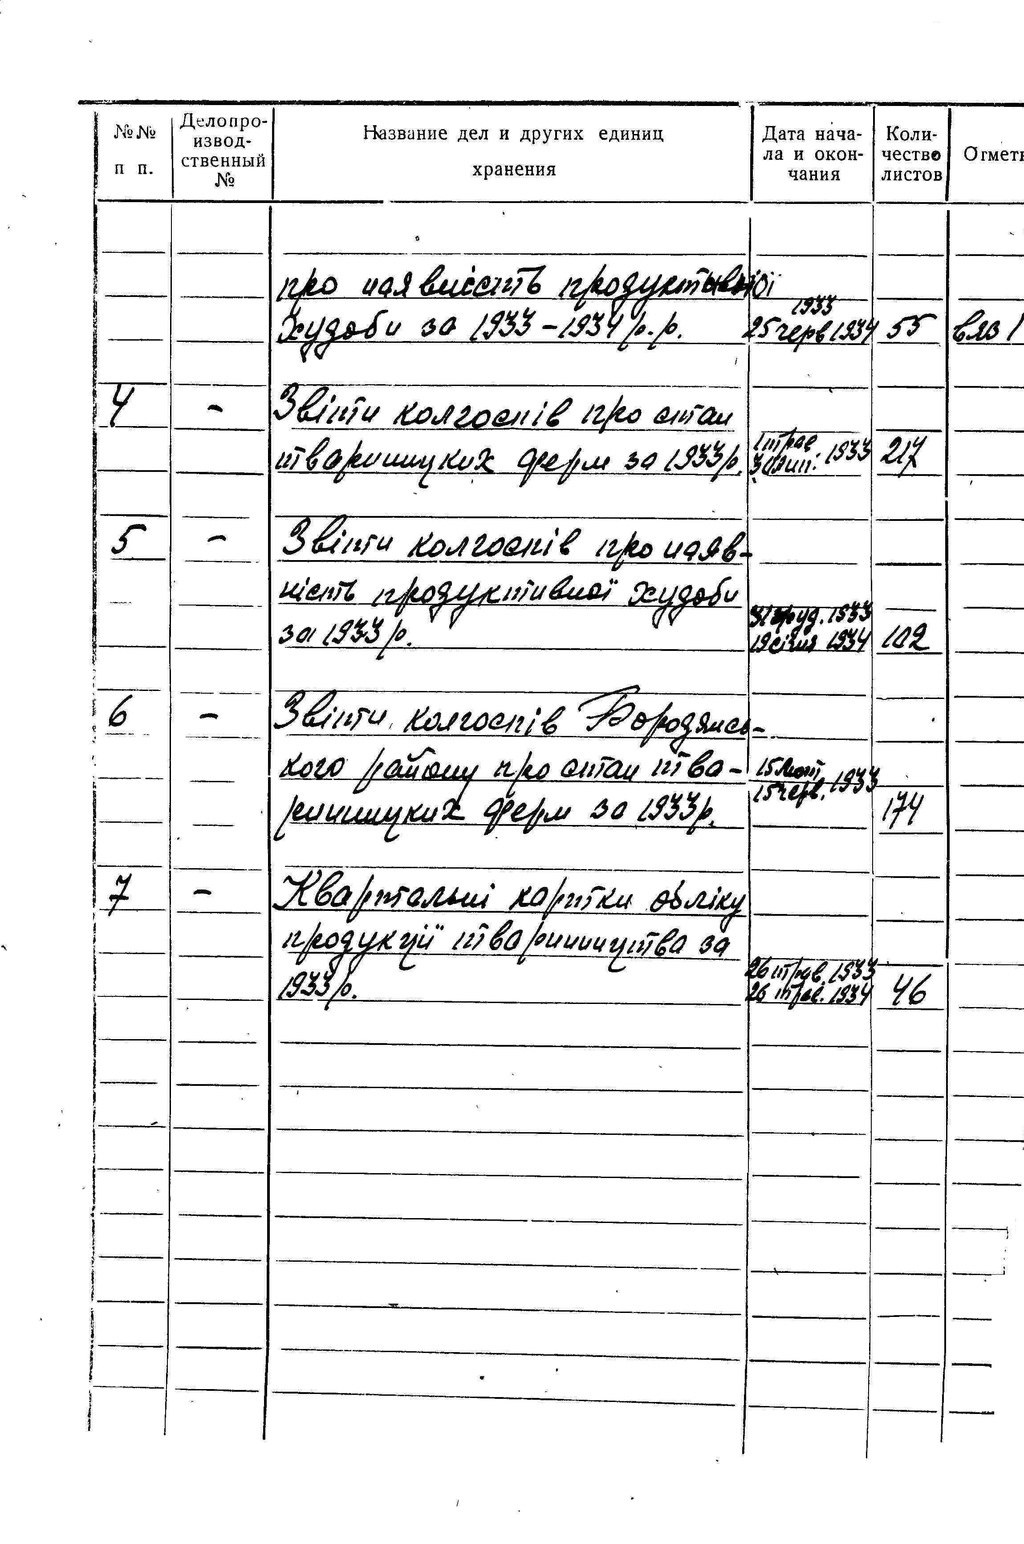 №№ п п. Делопроизвод- ственный № Название дел и других единиц хранения Дата нача- ла и окон- чания Коли- чество листов Отметк
про наявність продуктивної
1933
худоби за 1933-1934 р.р. 25 черв 1934 55
4 - Звіти колгоспів про стан
тваринницьких ферм за 1933р. 1 трав 1933 217
5 - Звіти колгоспів про наяв-
ність продуктивної худоби
31 груд. 1933
за 1933р. 19 січня 1934 102
6 - Звіти колгоспів Бородянсь-
кого району про стан тва- 15 лют. 15 черв. 1933
ринницьких ферм за 1933р. 174
7 - Квартальні картки обліку
продукції тваринництва за
26 трав. 1933
1933р. 26 трав. 1934 46